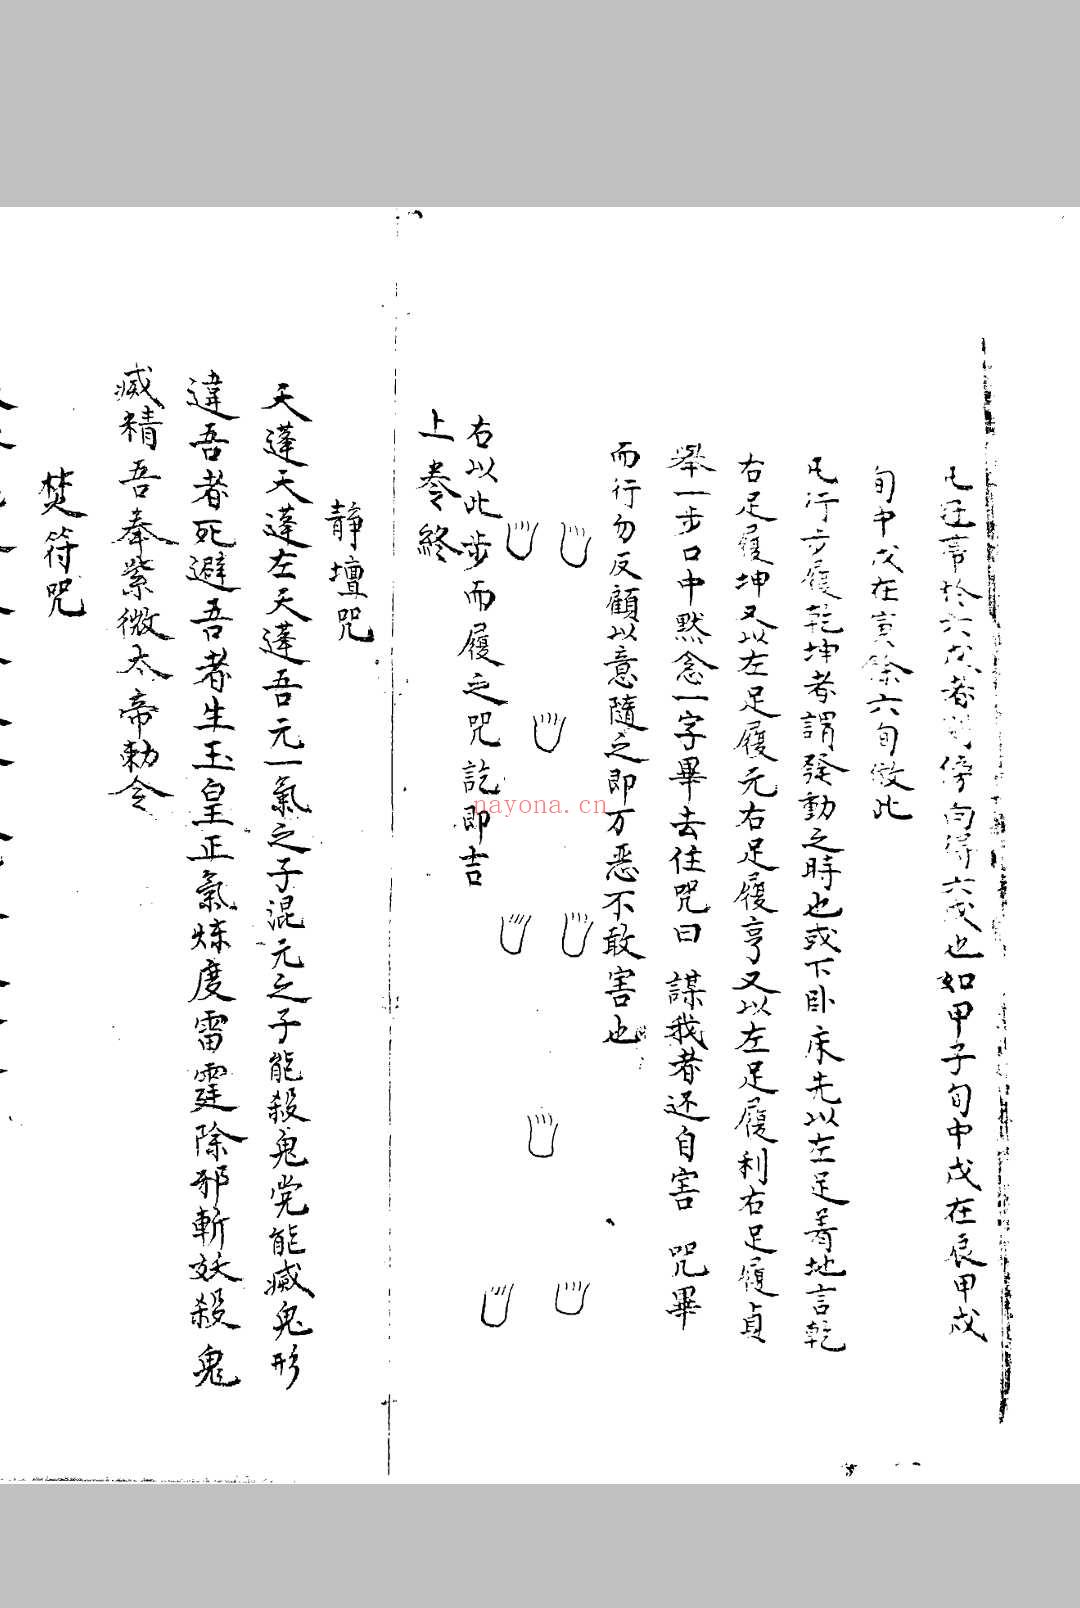 凡 於六戊者 傍 得六戊也如甲子旬中戊在辰甲戌
旬中戊在寅餘六旬倣此
凡行步履乾坤者謂發動之時也或下卧床先以左足着地言乾
右足履坤又以左足履元右足履亨又以左足履利右足履貞
舉一步口中黙念一字畢去住咒曰 謀我者还自害 咒畢
而行勿反顧以意隨之即万恶不敢害也
右以此步而履之咒訖即吉
上卷終
静壇咒
天蓬天蓬左天蓬吾元一氣之子混元之子能殺鬼党能滅鬼形
違吾者死避吾者生玉皇正氣煉度雷霆除邪斬妖殺鬼
滅精吾奉紫微太帝勅令
焚符咒
nayona.cn